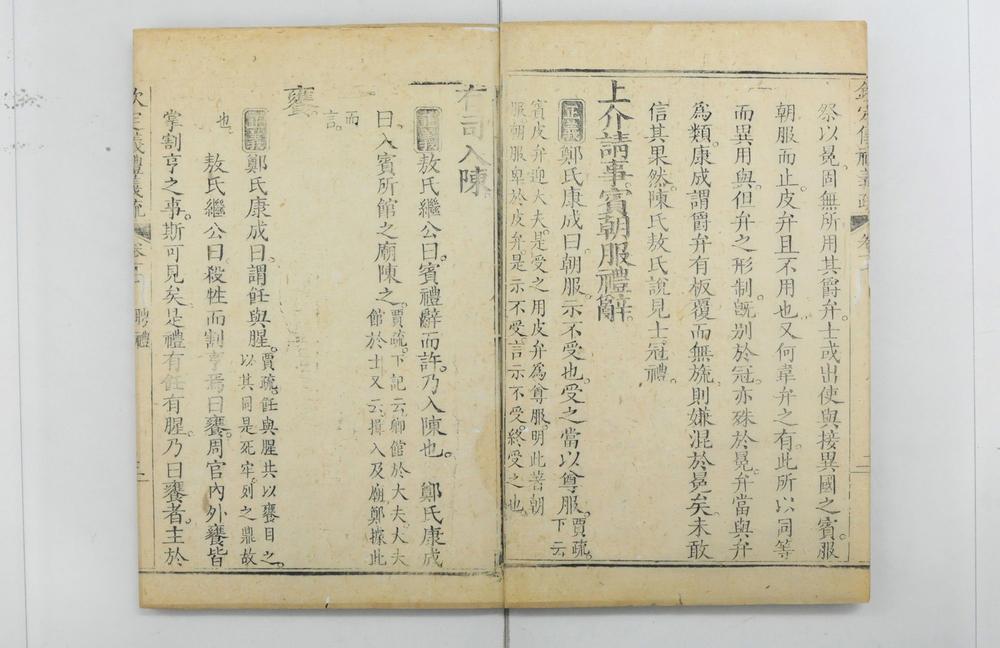 欽定儀禮義疏 卷十
祭以冕固無所用其爵弁士或出使與接異國之賓服
朝服而止皮弁且不用也又何韋弁之有此所以同等
而異用與但弁之形制旣别於冠亦殊於冕弁當與弁
為類康成謂爵弁有板覆而無旒則嫌混於冕矣未敢
信其果然陳氏敖氏說見士冠禮
上介請事賓朝服禮辭
正義鄭氏康成曰朝服示不受也受之當以尊服賈疏下云
賓皮弁迎大夫是受之用皮弁為尊服明此著朝
服朝服卑於皮弁是示不受言示不受終受之也
有司入陳
正義敖氏繼公曰賓禮辭而許乃入陳也 鄭氏康成
曰入賓所館之廟陳之賈疏下記云卿館於大夫大夫
館於士又云揖入及廟鄭據此
而言
饔
正義鄭氏康成曰謂飪與腥賈疏飪與腥共以饔目之
以其同是死牢列之鼎故
也
敖氏繼公曰殺牲而割亨焉曰饔周官內外饔皆
掌割亨之事斯可見矣是禮有飪有腥乃曰饔者主於
欽定儀禮義疏 卷十 聘禮 三